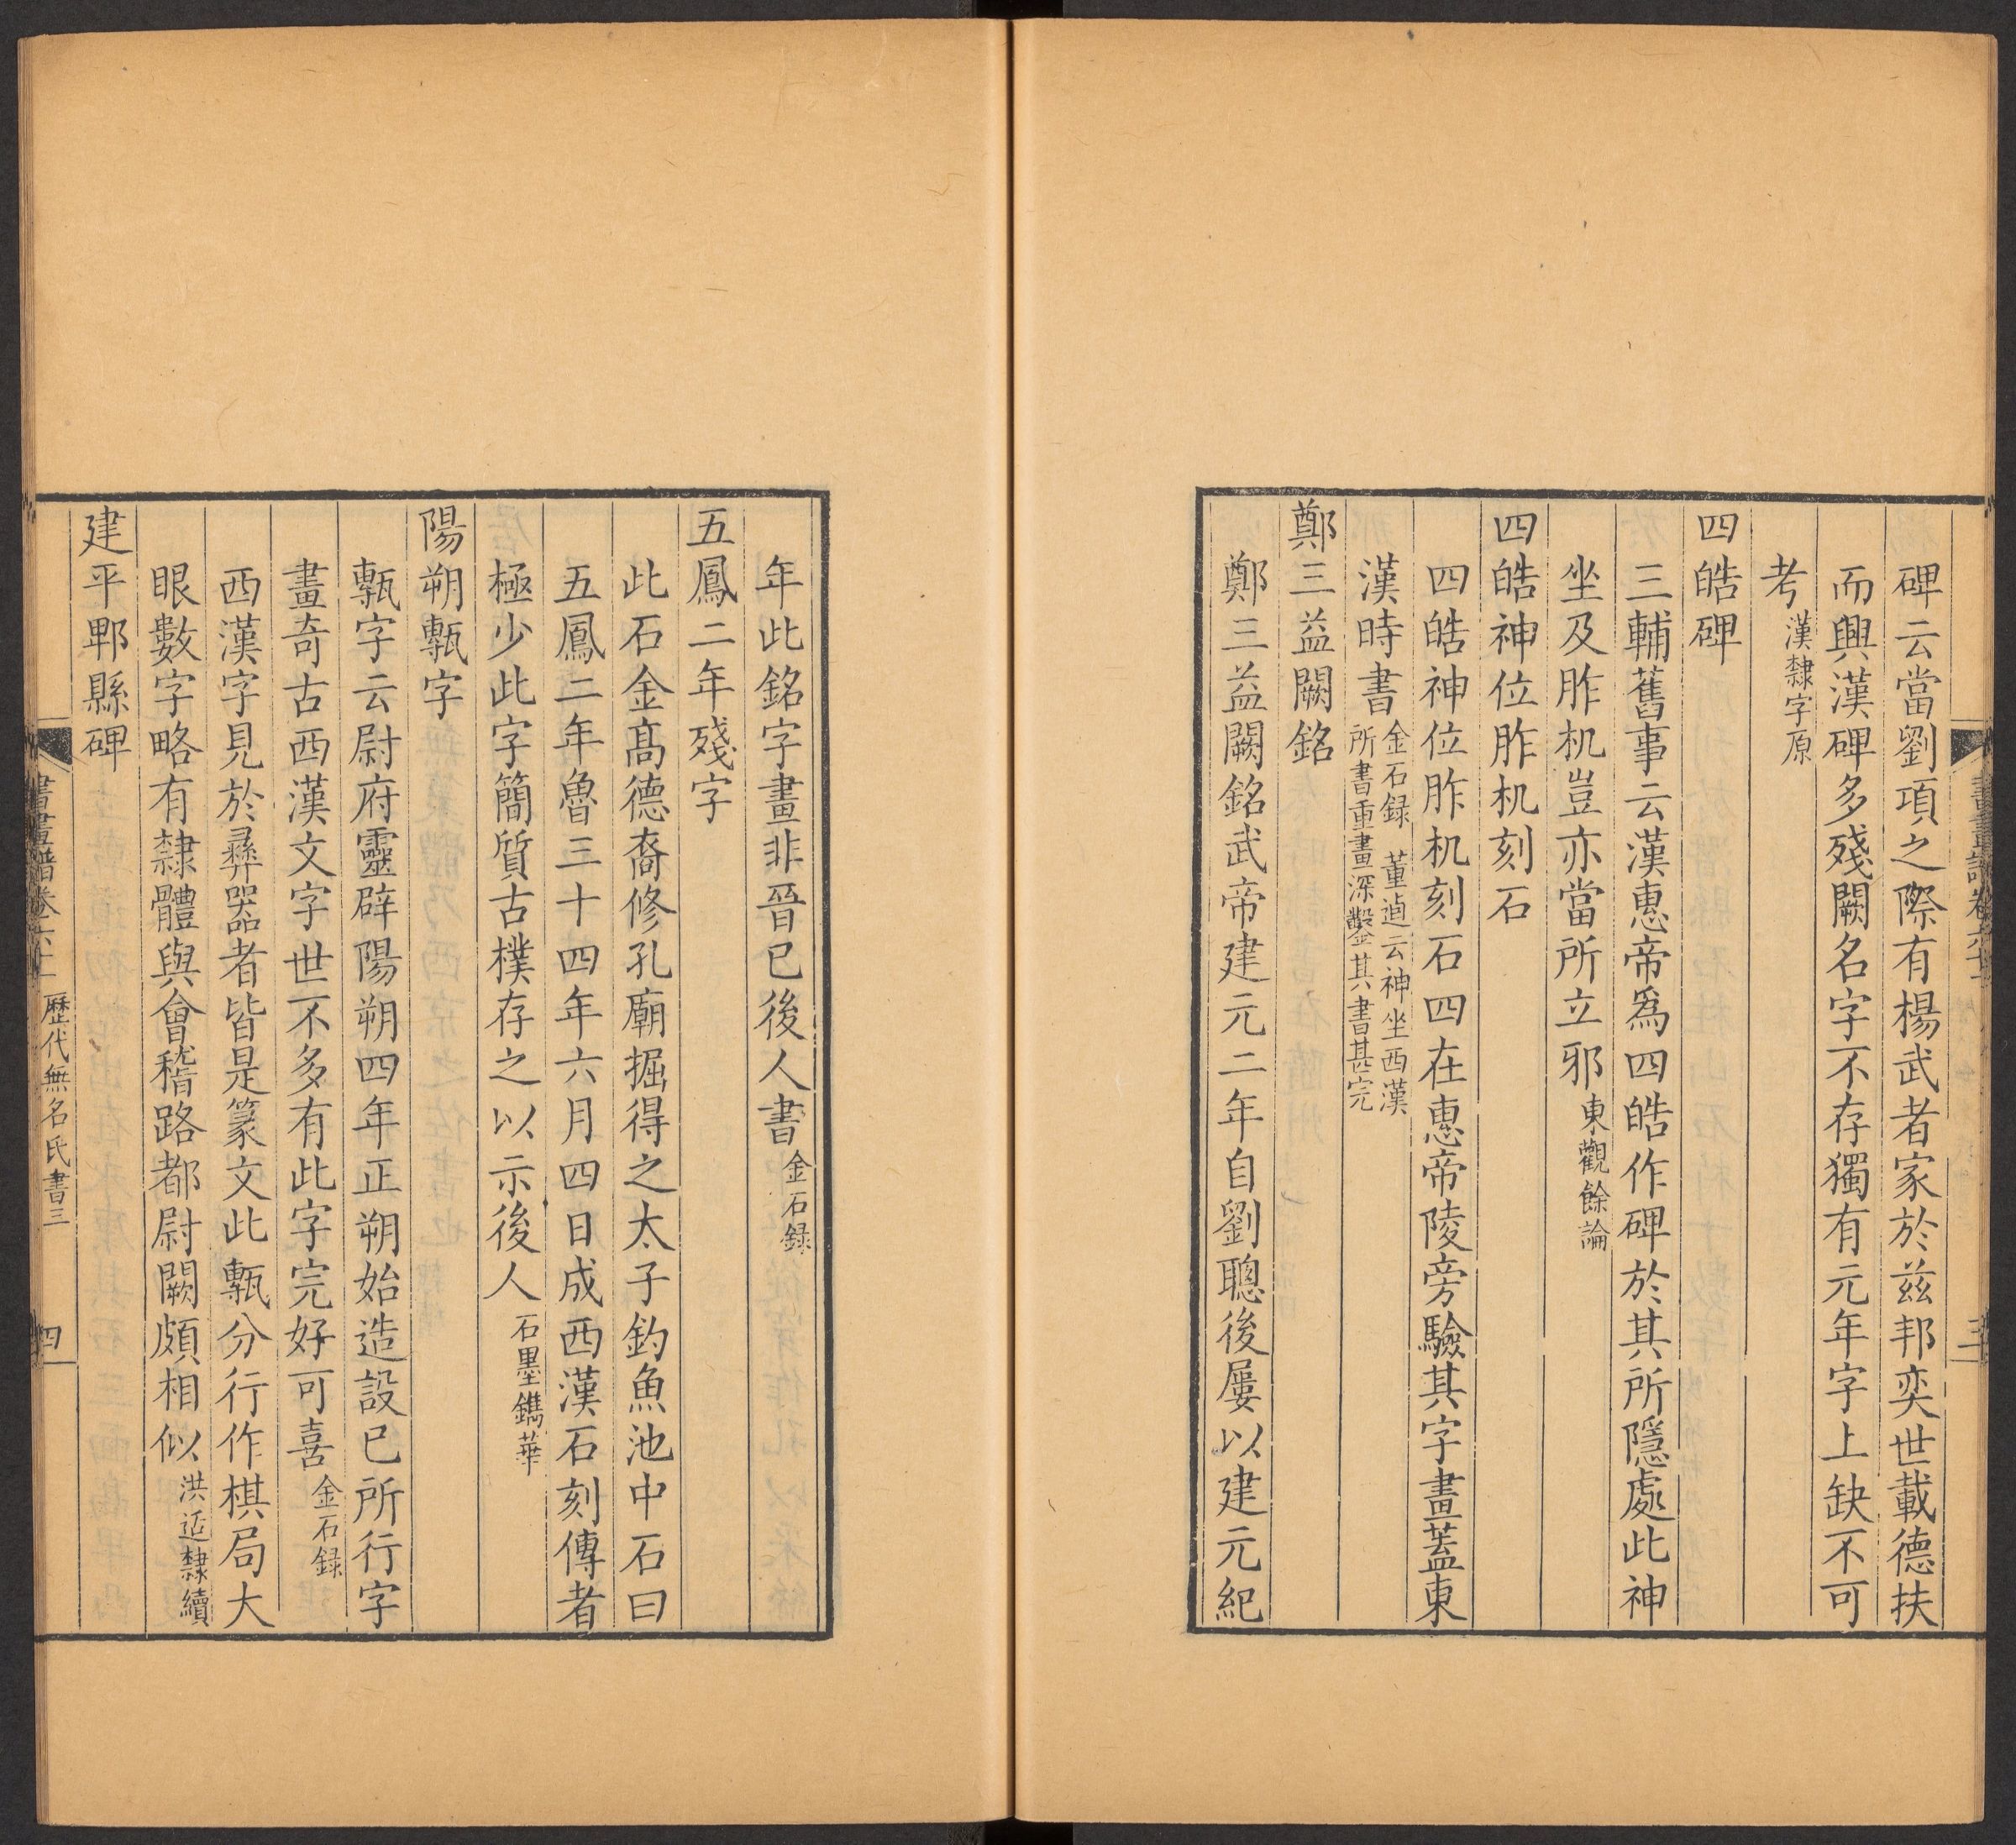 碑云當劉項之際有楊武者家於兹邦奕世載德扶
而興漢碑多殘闕名字不存獨有元年字上缺不可
考漢隸字原
四皓碑
三輔舊事云漢惠帝爲四皓作碑於其所隱處此神
坐及胙机豈亦當所立邪東觀餘論
四皓神位胙机刻石
四皓神位胙机刻石四在惠帝陵旁驗其字畫蓋東
漢時書金石録 董逌云神坐西漢
所書重畫深鑿其書甚完
鄭三益闕銘
鄭三益闕銘武帝建元二年自劉聰後屢以建元紀
三
年此銘字畫非晉已後人書金石録
五鳳二年殘字
此石金髙德裔修孔廟掘得之太子釣魚池中石曰
五鳳二年魯三十四年六月四日成西漢石刻傳者
極少此字簡質古樸存之以示後人石墨鐫華
陽朔甎字
甎字云尉府靈辟陽朔四年正朔始造設已所行字
畫奇古西漢文字世不多有此字完好可喜金石録
西漢字見於彛器者皆是篆文此甎分行作棋局大
眼數字略有隸體與會稽路都尉闕頗相似洪适隸續
建平郫縣碑
書畫譜卷六十一 歷代無名氏書三 四